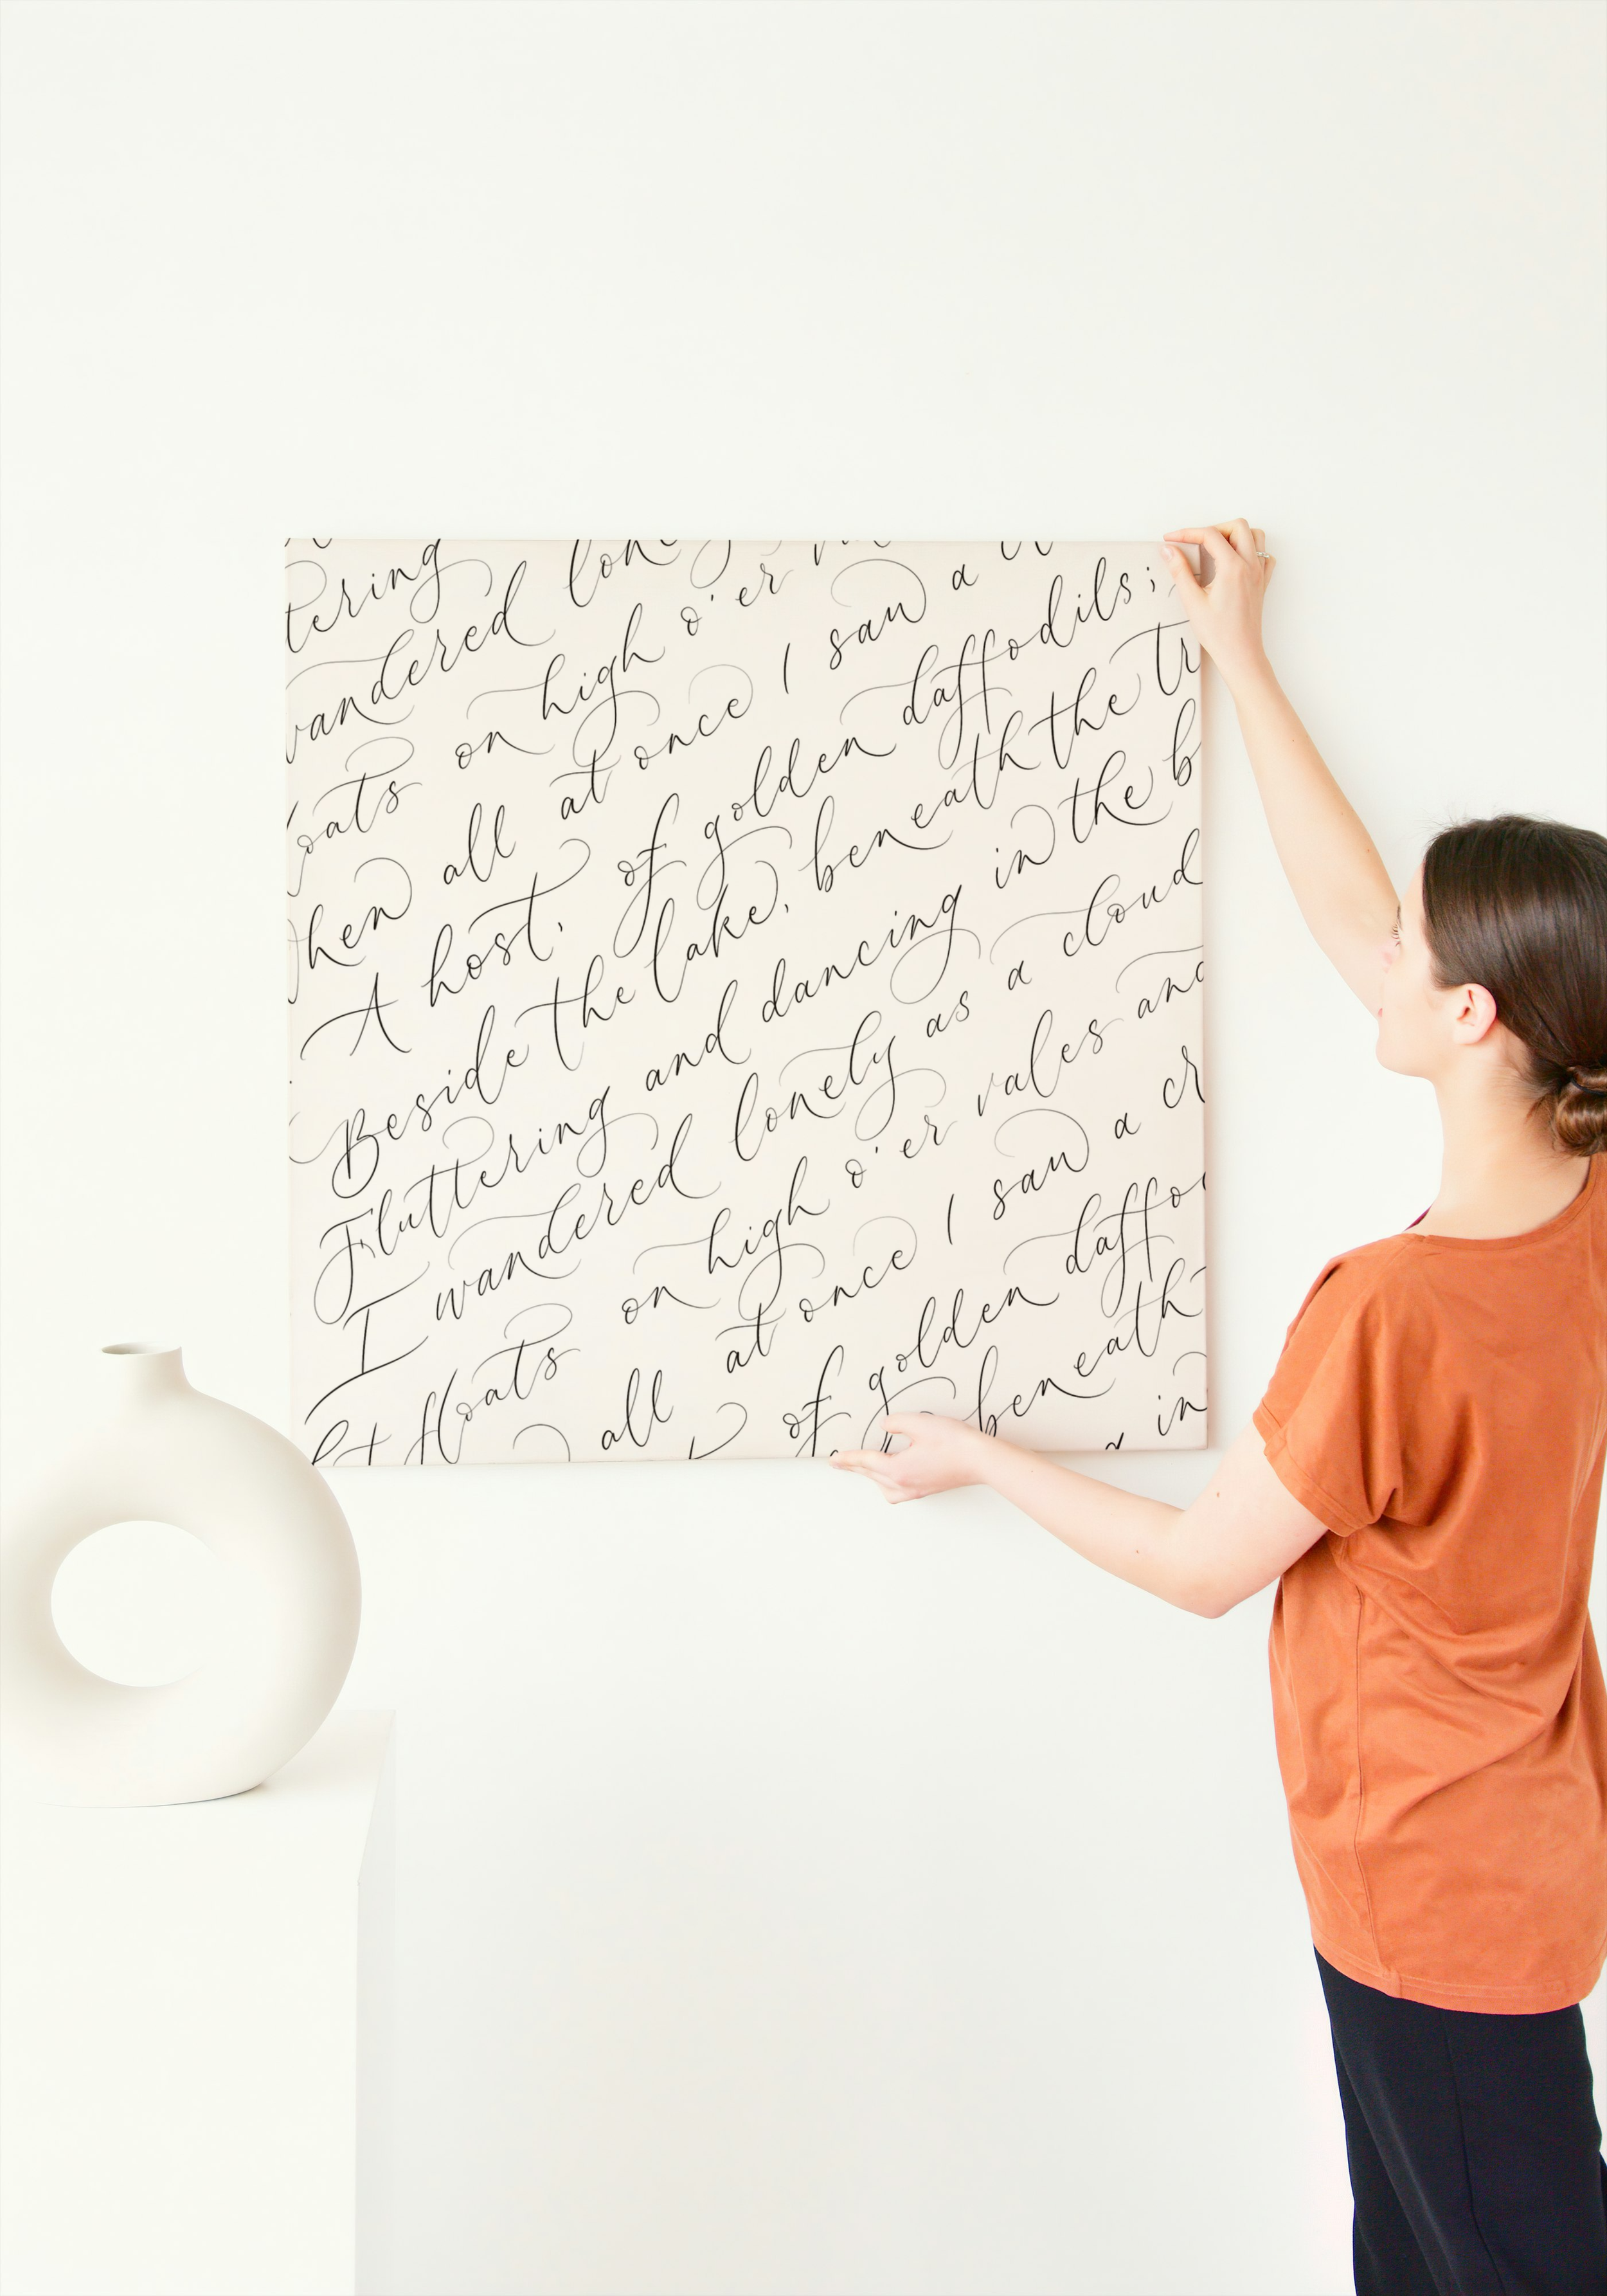 tering
wandered lon
oats on high o'er
hen all at once I saw a
A host, of golden daffodils;
Beside the lake, beneath the tr
Fluttering and dancing in the b
I wandered lonely as a cloud
floats on high o'er vales and
all at once I saw a cr
of golden daffo
beneath
in